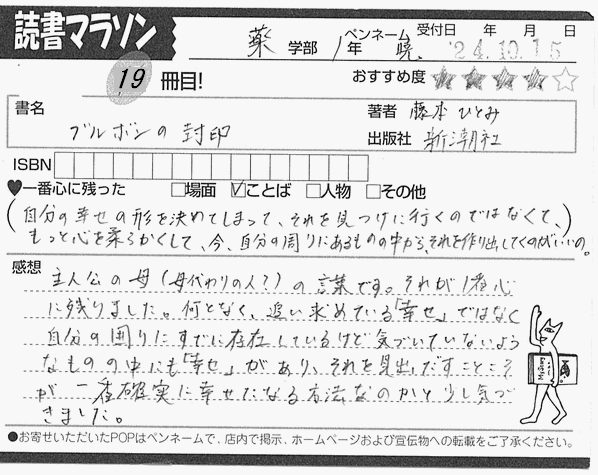 読書マラソン
薬 学部 1年 ペンネーム 暁. 受付日 年 月 日
'24.10.15
19 冊目! おすすめ度 ★★★★☆
書名 ブルボンの封印
著者 藤本ひとみ
出版社 新潮社
ISBN
♥一番心に残った □場面 ☑ことば □人物 □その他
(自分の幸せの形を決めてしまって、それを見つけに行くのではなくて、
もっと心を柔らかくして、今、自分の周りにあるものの中から、それを作り出してくのがいいの。)
感想
主人公の母(母代わりの人?)の言葉です。それが1番心
に残りました。何となく、追い求めている「幸せ」ではなく
自分の周りにすでに存在しているけど気づいていないよう
なものの中にも「幸せ」があり、それを見出だすことこそ
が一番確実に幸せになる方法なのかと少し気づ
きました。
Mystery
●お寄せいただいたPOPはペンネームで、店内で掲示、ホームページおよび宣伝物への転載をご了承ください。